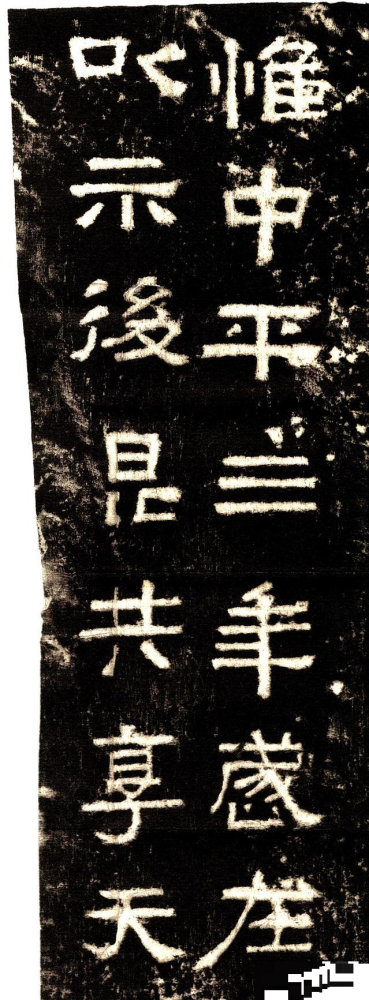 惟中平三年歲在
㠯示後昆共享天